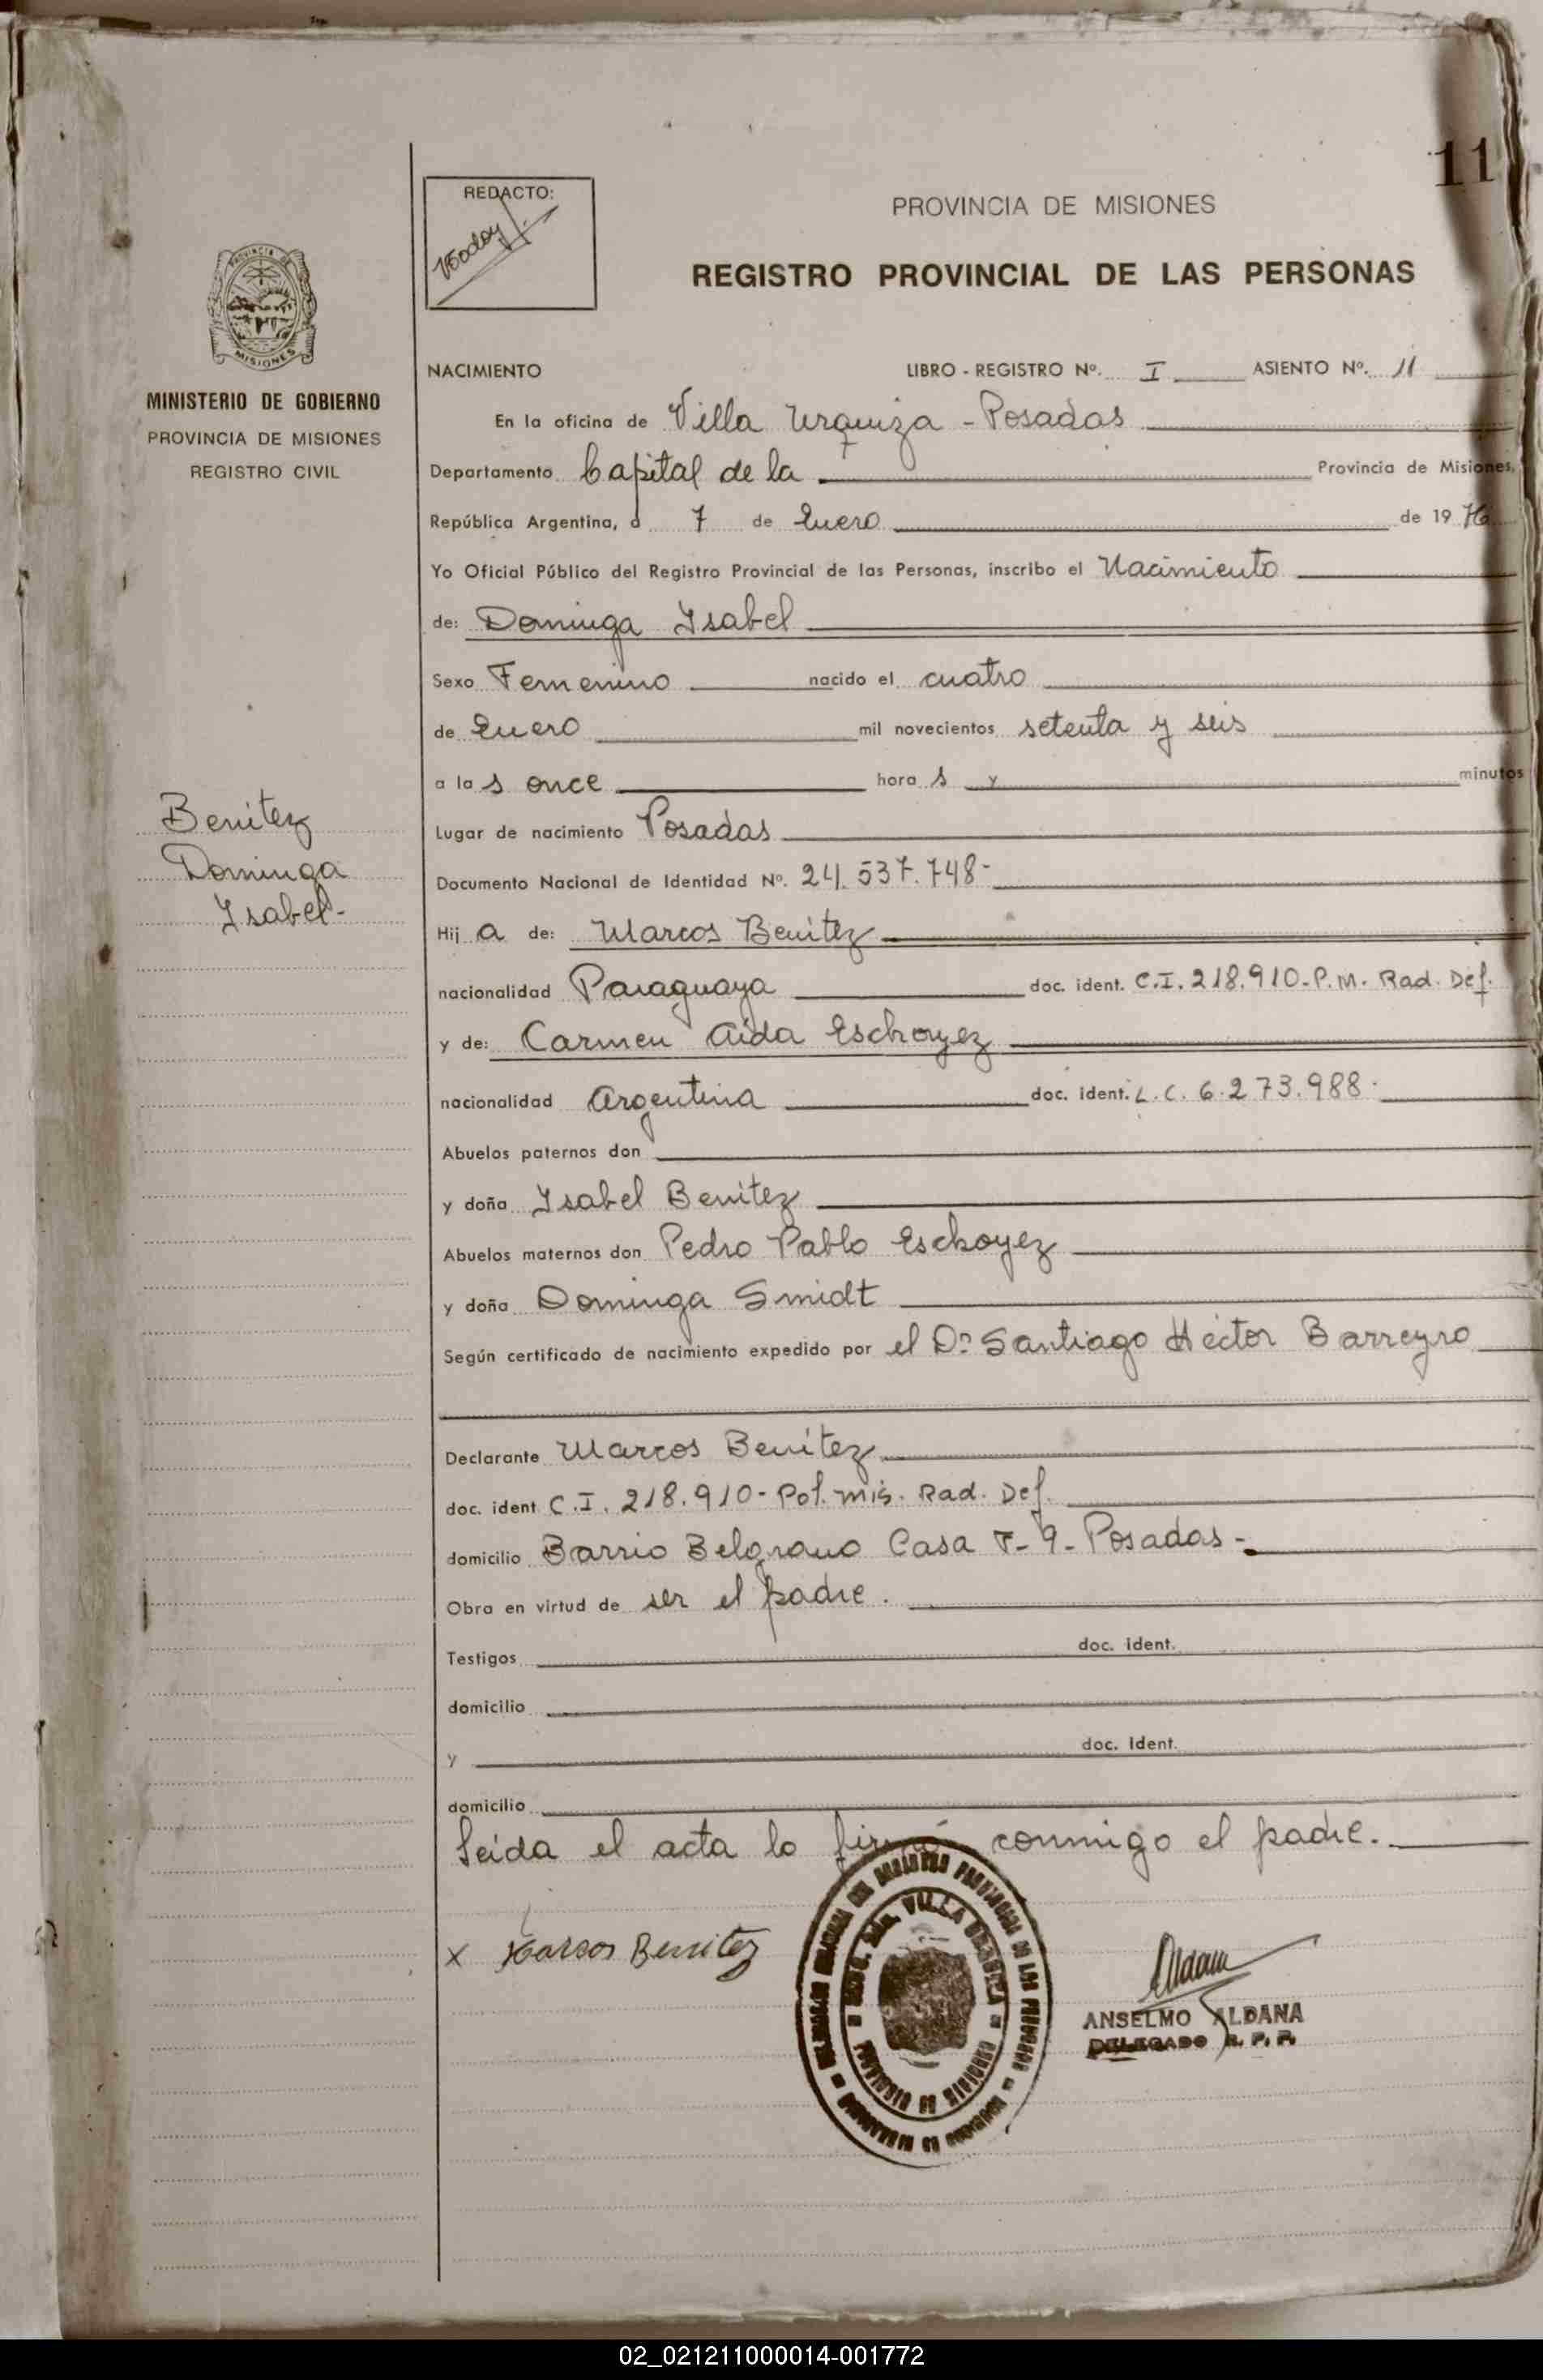 11
REDACTO:
PROVINCIA DE MISIONES
REGISTRO PROVINCIAL DE LAS PERSONAS
PROVINCIA DE
MISIONES
MINISTERIO DE GOBIERNO
PROVINCIA DE MISIONES
REGISTRO CIVIL
NACIMIENTO LIBRO - REGISTRO Nº. I ASIENTO Nº. 11
En la oficina de Villa Urquiza - Posadas
Departamento Capital de la Provincia de Misiones,
República Argentina, a 7 de Enero de 1976
Yo Oficial Público del Registro Provincial de las Personas, inscribo el Nacimiento
de: Dominga Ysabel
Sexo Femenino nacido el cuatro
de Enero mil novecientos setenta y seis
a las once horas y minutos
Benítez
Dominga
Ysabel-
Lugar de nacimiento Posadas
Documento Nacional de Identidad Nº. 24.537.748-
Hija de: Marcos Benítez
nacionalidad Paraguaya doc. ident. C.I. 218.910-P.M. Rad. Def.
y de: Carmen Aida Eschoyez
nacionalidad Argentina doc. ident. L.C. 6.273.988-
Abuelos paternos don
y doña Ysabel Benítez
Abuelos maternos don Pedro Pablo Eschoyez
y doña Dominga Smidt
Según certificado de nacimiento expedido por el Dr. Santiago Héctor Barreyro
Declarante Marcos Benítez
doc. ident C.I. 218.910- Pol. Mis. Rad. Def.
domicilio Barrio Belgrano Casa 9- Posadas-
Obra en virtud de ser el padre.
Testigos doc. ident.
domicilio
y doc. Ident.
domicilio
Leída el acta la firmó conmigo el padre.
x Marcos Benitez
VILLA URQUIZA
ANSELMO ALDANA
DELEGADO R. P. P.
02_021211000014-001772